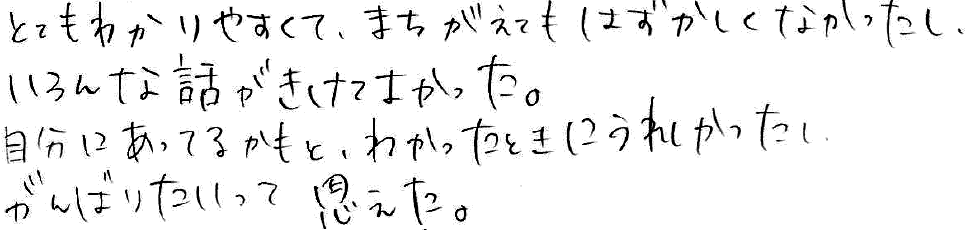 とてもわかりやすくて、まちがえてもはずかしくなかったし、
いろんな話がきけてよかった。
自分にあってるかもと、わかったときにうれしかったし
がんばりたいって思えた。